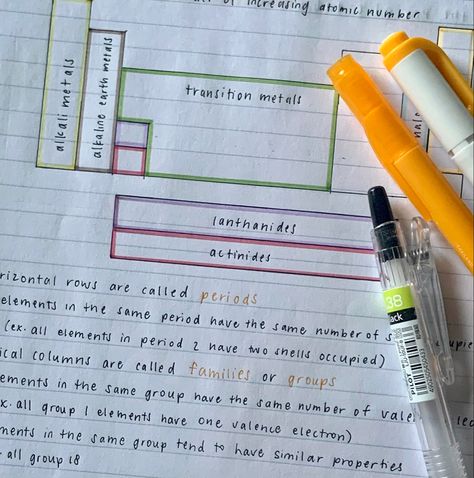 of increasing atomic number
alkali metals
alkaline earth metals
transition metals
lanthanides
actinides
rizontal rows are called periods
elements in the same period have the same number of s
(ex. all elements in period 2 have two shells occupied)
ical columns are called families or groups
ements in the same group have the same number of vale
x. all group 1 elements have one valence electron)
ments in the same group tend to have similar properties
all group 18
38
ack
PILOT